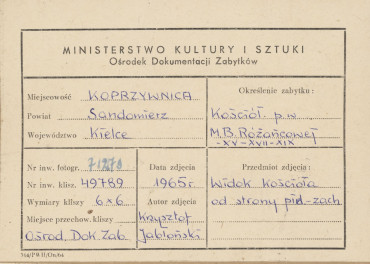 MINISTERSTWO KULTURY I SZTUKI
Ośrodek Dokumentacji Zabytków
Miejscowość KOPRZYWNICA
Powiat Sandomierz
Województwo Kielce
Określenie zabytku:
Kościół p.w.
M.B. Różańcowej
-XV-XVII-XIX
Nr inw. fotogr. 71270
Nr inw. klisz. 49789
Wymiary kliszy 6x6
Miejsce przechow. kliszy
Ośrod. Dok. Zab.
Data zdjęcia
1965 r.
Autor zdjęcia
Krzysztof
Jabłoński
Przedmiot zdjęcia:
Widok kościoła
od strony płd-zach